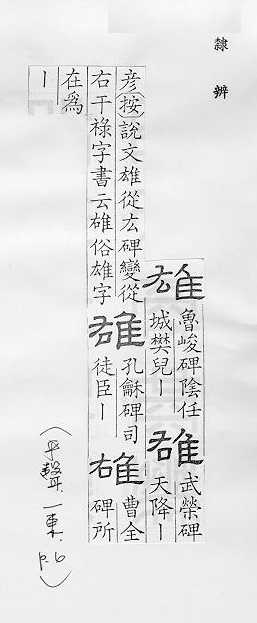 隸辨
雄
魯峻碑陰任
城樊兒丨
雄
武榮碑
天降丨
彥(按)說文雄從厷碑變從
右干祿字書云雄俗雄字
雄
孔龢碑司
徒臣丨
雄
曹全
碑所
在為
丨
(平聲.一東.p.6)